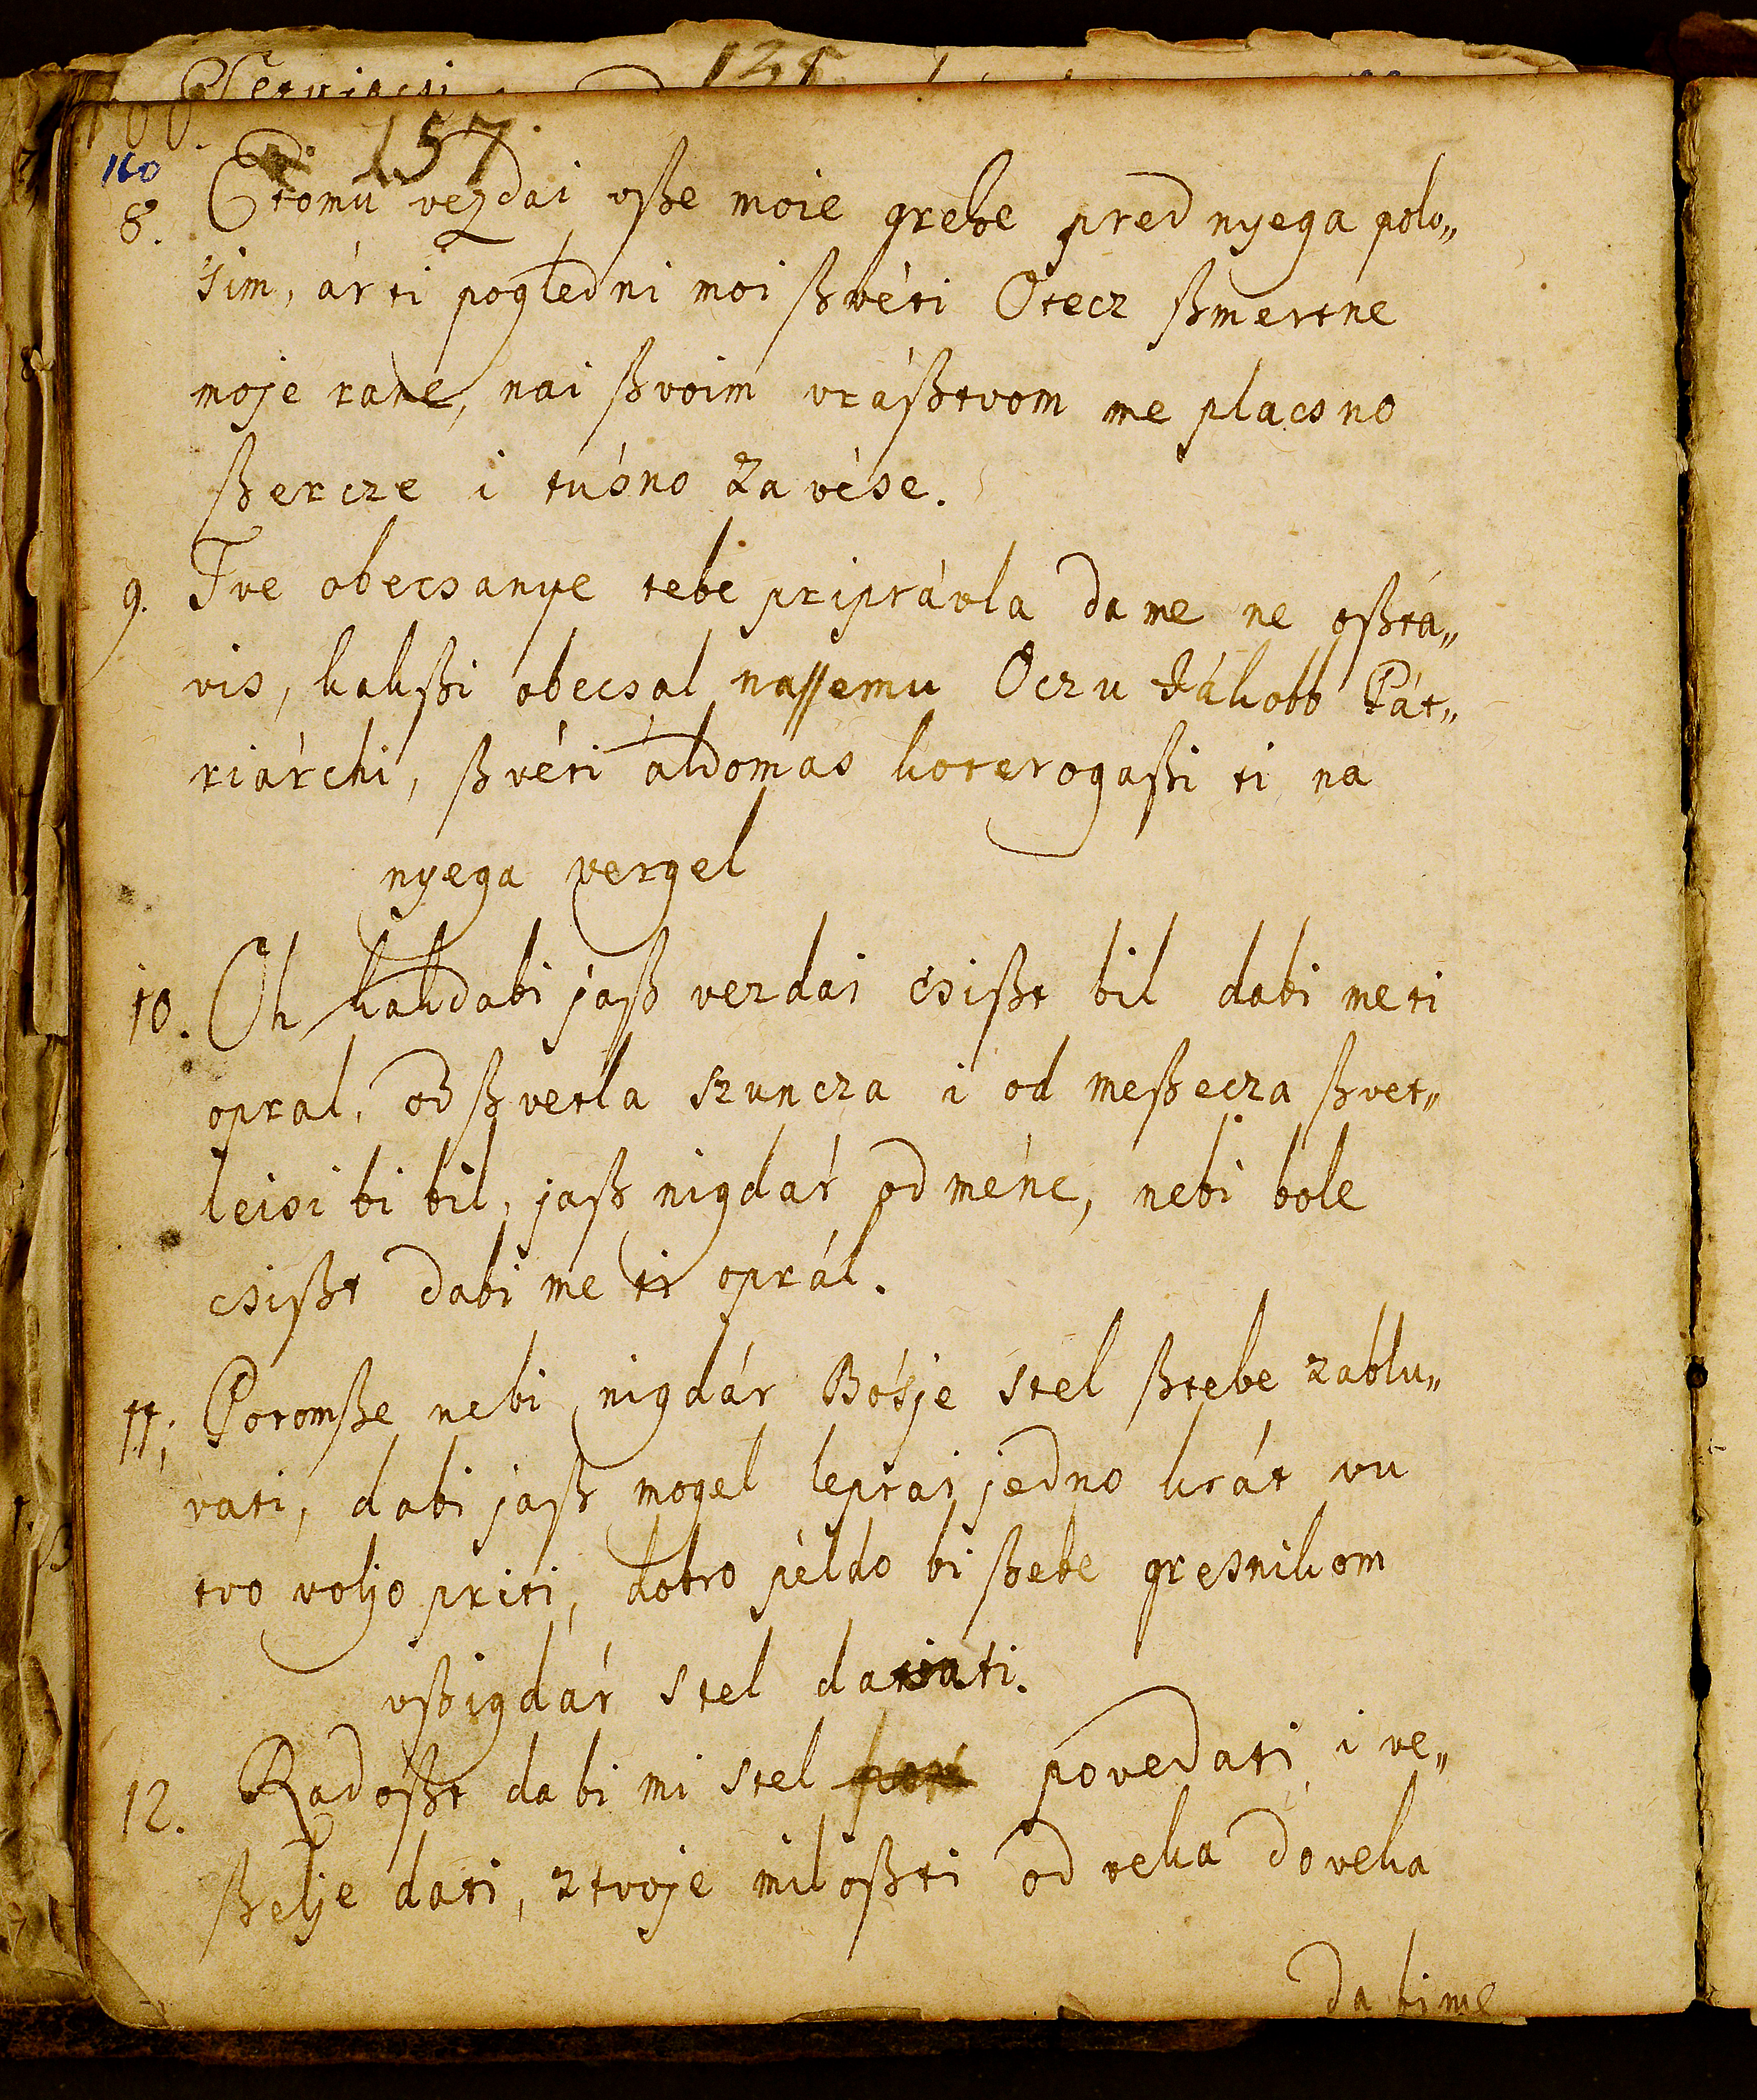 125
160
157.
8. Ctomu vezdai vße moie grehe pred nyega polo„
sim, ár ti pogledni moi ßvéti Otecz ßmertne
moje rane, nai ßvoim vráßtvom me placsno
ßercze i tusno zavése.
9. Tve obecsanye tebé priprávla da me ne oßtá„
vis, kakßi obecsal nassemu Oczu Jákobb Pát„
riárchi, ßvéti áldomas koterogaßi ti na
nyega vergel
10. Oh kakdabi jaß vezdai csißt bil dabi me ti
opral, od ßvetla szuncza i od meßecza ßvet„
leisi bi bil, jaß nigdár od méne, nebi bole
csißt dabi me ti oprál.
11. Potomße nebi nigdár Bósje stel ßtebe zablu„
vati, dabi jaß mogel leprai jedno krát vu
tvo voljo priti, dobro példo bi ßebe gresnikom
vßigdár stel dati.
12. Radoßt da bi mi stel povedati i ve„
ßelje dati, ztvoje miloßti od veka do veka
da bi me